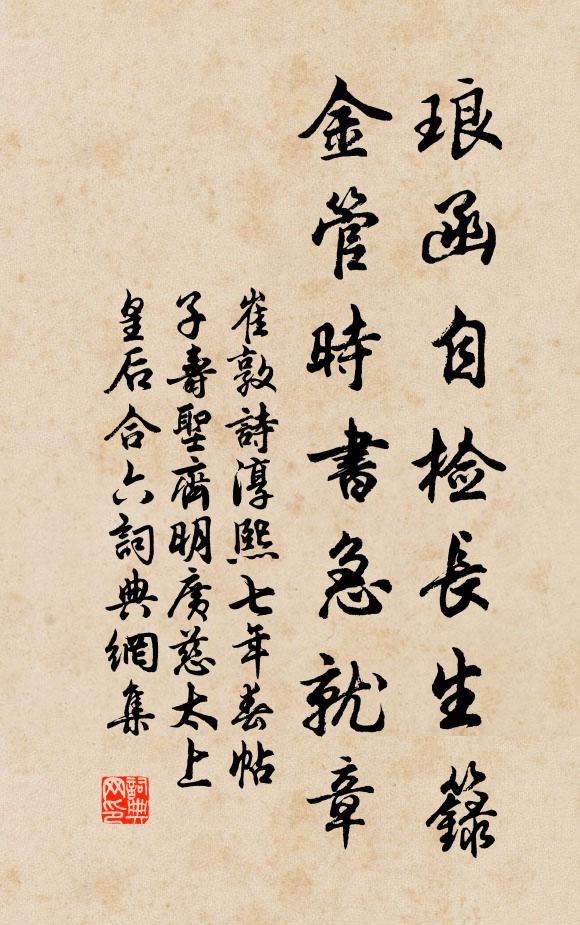 琅函自检長生籙
金管時書急就章
崔敦詩淳熙七年春帖
子壽聖齊明廣慈太上
皇后合六詞典網集
詞典
网印